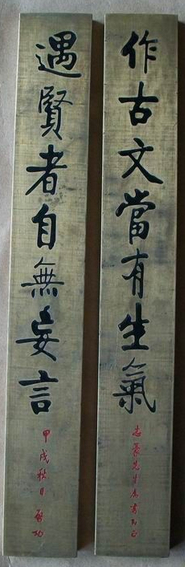 作古文當有生氣
遇賢者自無妄言
甲戌秋日 啟功